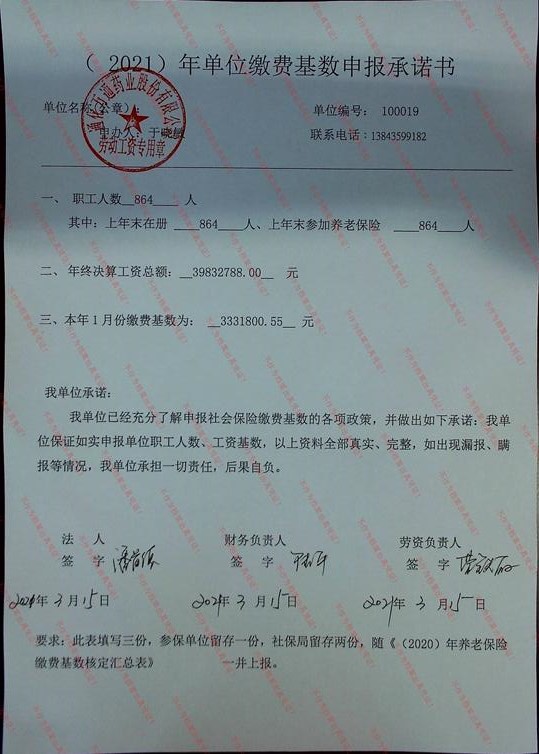 （ 2021）年单位缴费基数申报承诺书
单位名称(公章)：
单位编号： 100019
申办人：于晓敏
联系电话：13843599182
通化百通药业股份有限公司
劳动工资专用章
一、 职工人数__864____ 人
其中：上年末在册 ____864____人、上年末参加养老保险 ____864____人
二、年终决算工资总额：__39832788.00__ 元
三、本年1月份缴费基数为： __3331800.55__ 元
我单位承诺：
我单位已经充分了解申报社会保险缴费基数的各项政策，并做出如下承诺：我单
位保证如实申报单位职工人数、工资基数，以上资料全部真实、完整，如出现漏报、瞒
报等情况，我单位承担一切责任，后果自负。
法 人 财务负责人 劳资负责人
签 字 签 字 签 字
2021年 3 月 15 日 2021年 3 月 15 日 2021年 3 月 15 日
要求：此表填写三份，参保单位留存一份，社保局留存两份，随《（2020）年养老保险
缴费基数核定汇总表》 一并上报。